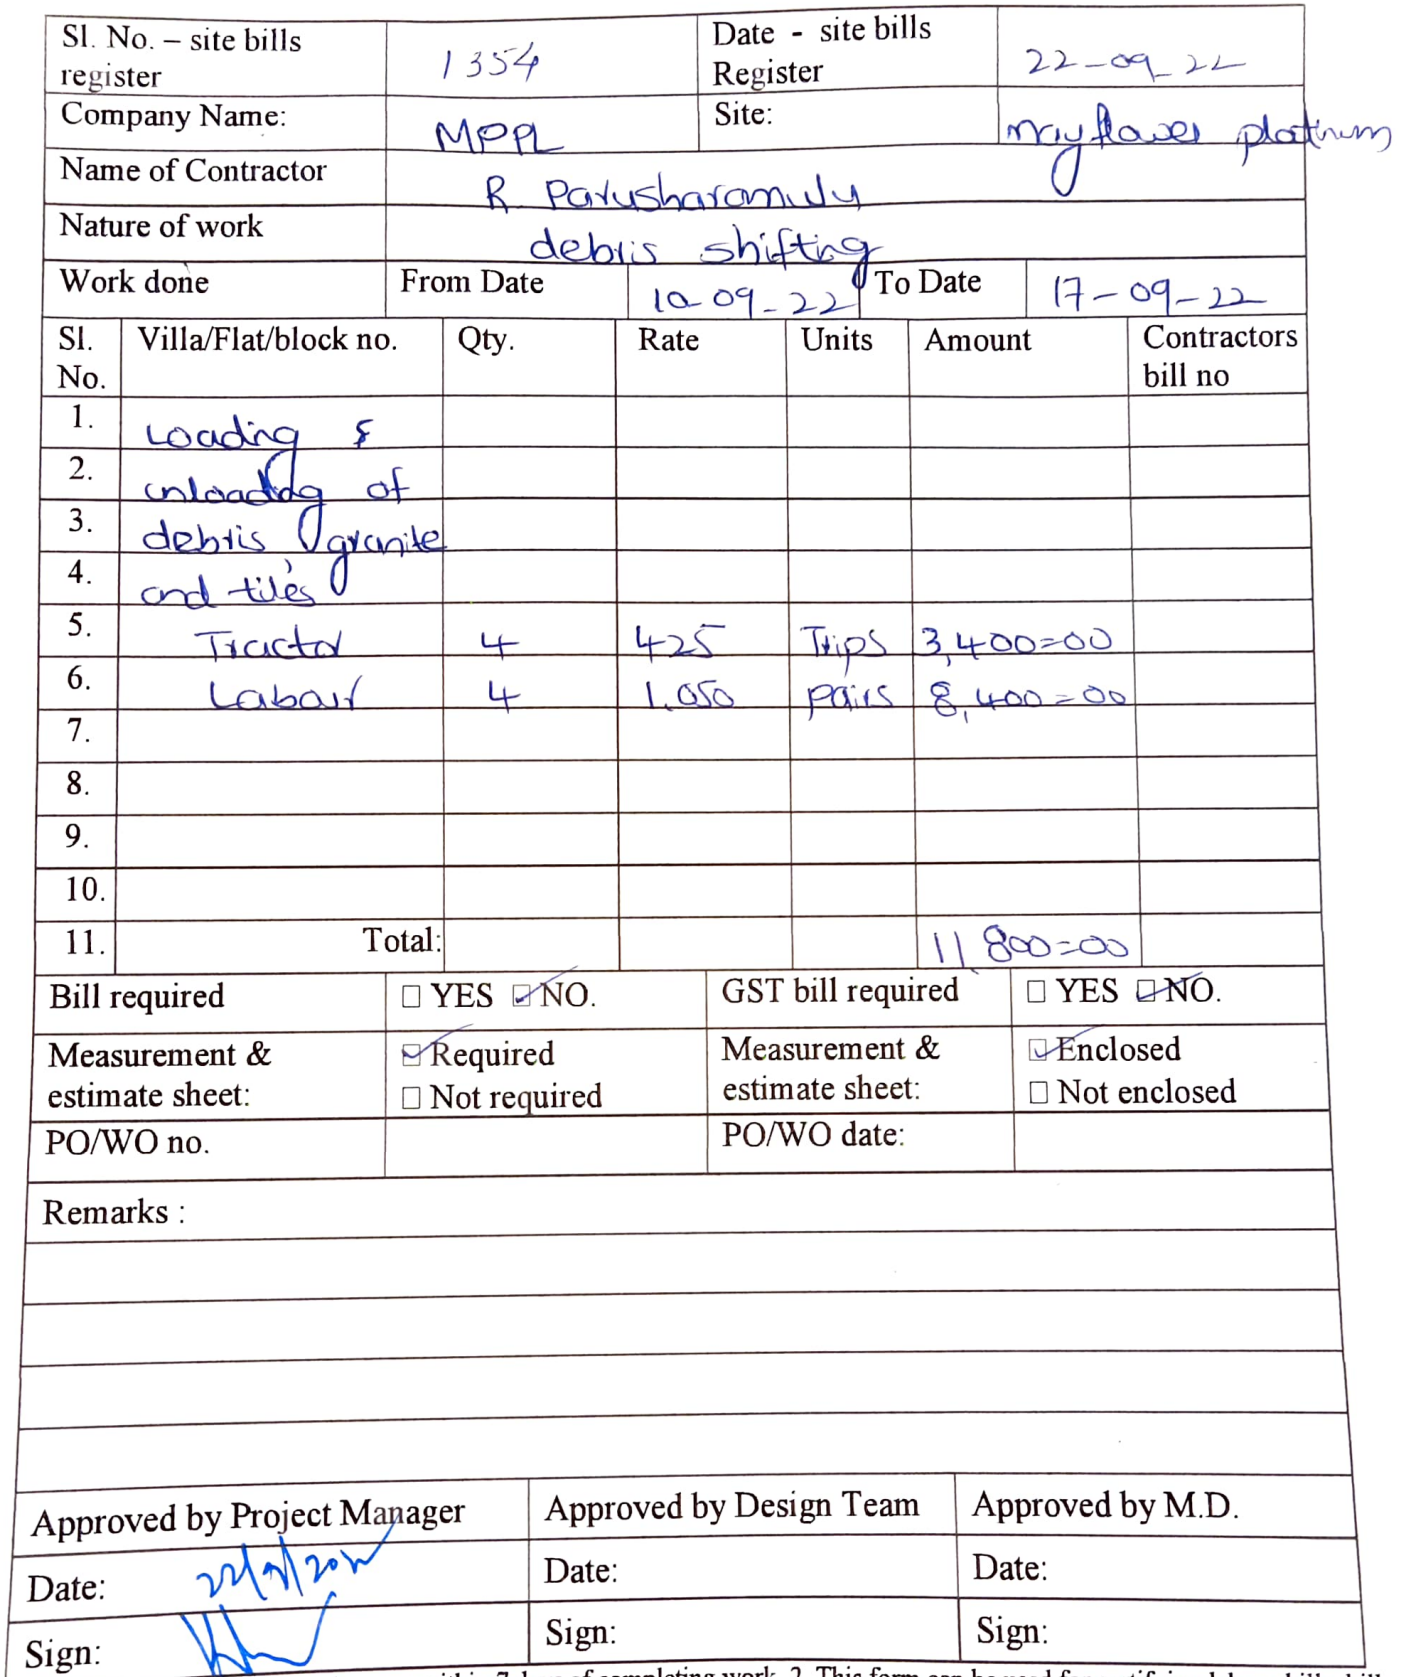 Sl. No. – site bills register 1354 Date - site bills Register 22-09-22
Company Name: MPPL Site: mayflower platinum
Name of Contractor R Parusharamulu
Nature of work debris shifting
Work done From Date 10-09-22 To Date 17-09-22
Sl. No. Villa/Flat/block no. Qty. Rate Units Amount Contractors bill no
1. Loading &
2. unloading of
3. debris, granite
4. and tiles
5. Tractor 4 425 Trips 3,400=00
6. Labour 4 1,050 pairs 8,400=00
7.
8.
9.
10.
11. Total: 11,800=00
Bill required ☐ YES ☑ NO. GST bill required ☐ YES ☑ NO.
Measurement & estimate sheet: ☑ Required ☐ Not required Measurement & estimate sheet: ☑ Enclosed ☐ Not enclosed
PO/WO no. PO/WO date:
Remarks :
Approved by Project Manager Approved by Design Team Approved by M.D.
Date: 22/9/2022 Date: Date:
Sign: Sign: Sign: